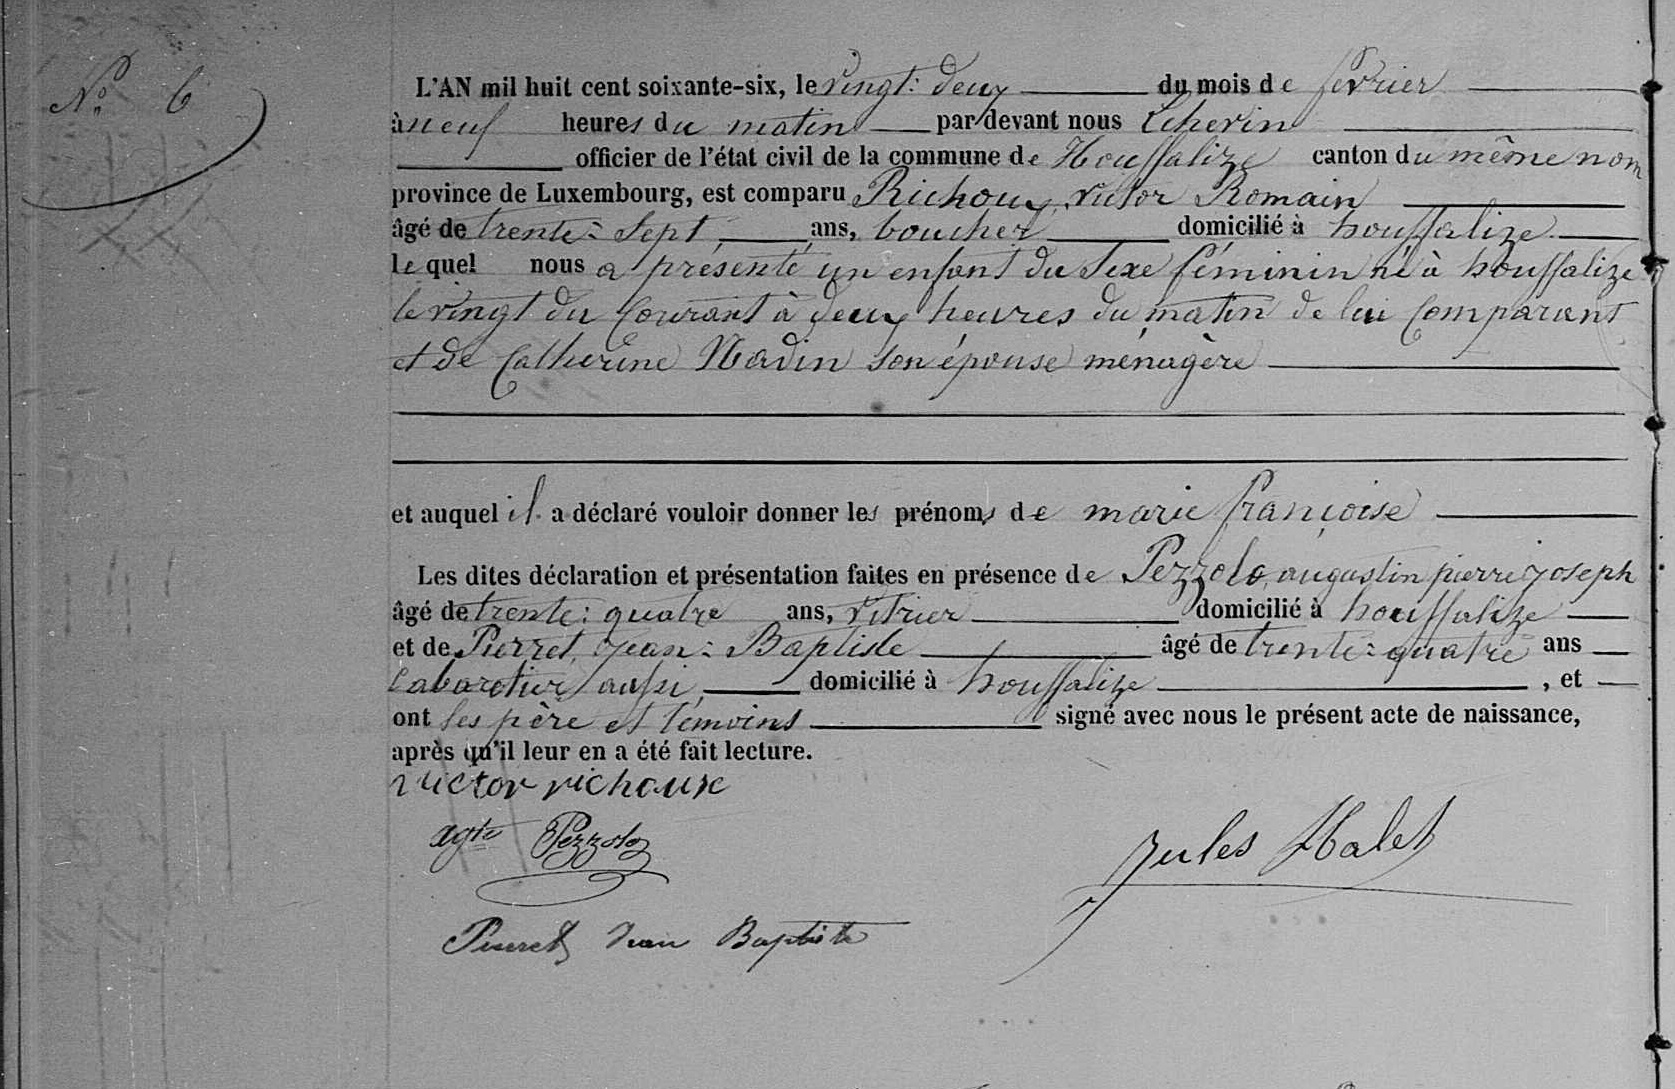 N° 6
L'AN mil huit cent soixante-six, le vingt: deux du mois de février
à neuf heures du matin par devant nous
officier de l'état civil de la commune de Houffalize canton du même nom
province de Luxembourg, est comparu Richoux, victor Romain
âgé de trente: Sept ans, boucher domicilié à houffalize
le quel nous a présenté un enfant du Sexe féminin né à houffalize
le vingt du Courant à deux heures du matin de lui Comparant
et de Catherine Nadin Son épouse ménagère
et auquel il a déclaré vouloir donner les prénoms de marie françoise
Les dites déclaration et présentation faites en présence de Pezzolo, augustin pierre joseph
âgé de trente: quatre ans, vitrier domicilié à houffalize
et de Pierret, Jean: Baptiste âgé de trente: quatre ans
Cabaretier aussi, domicilié à houffalize , et
ont les père et témoins signé avec nous le présent acte de naissance,
après qu'il leur en a été fait lecture.
victor richoux
agte Pezzolo
Jules Halet
Pierret Jean Baptiste